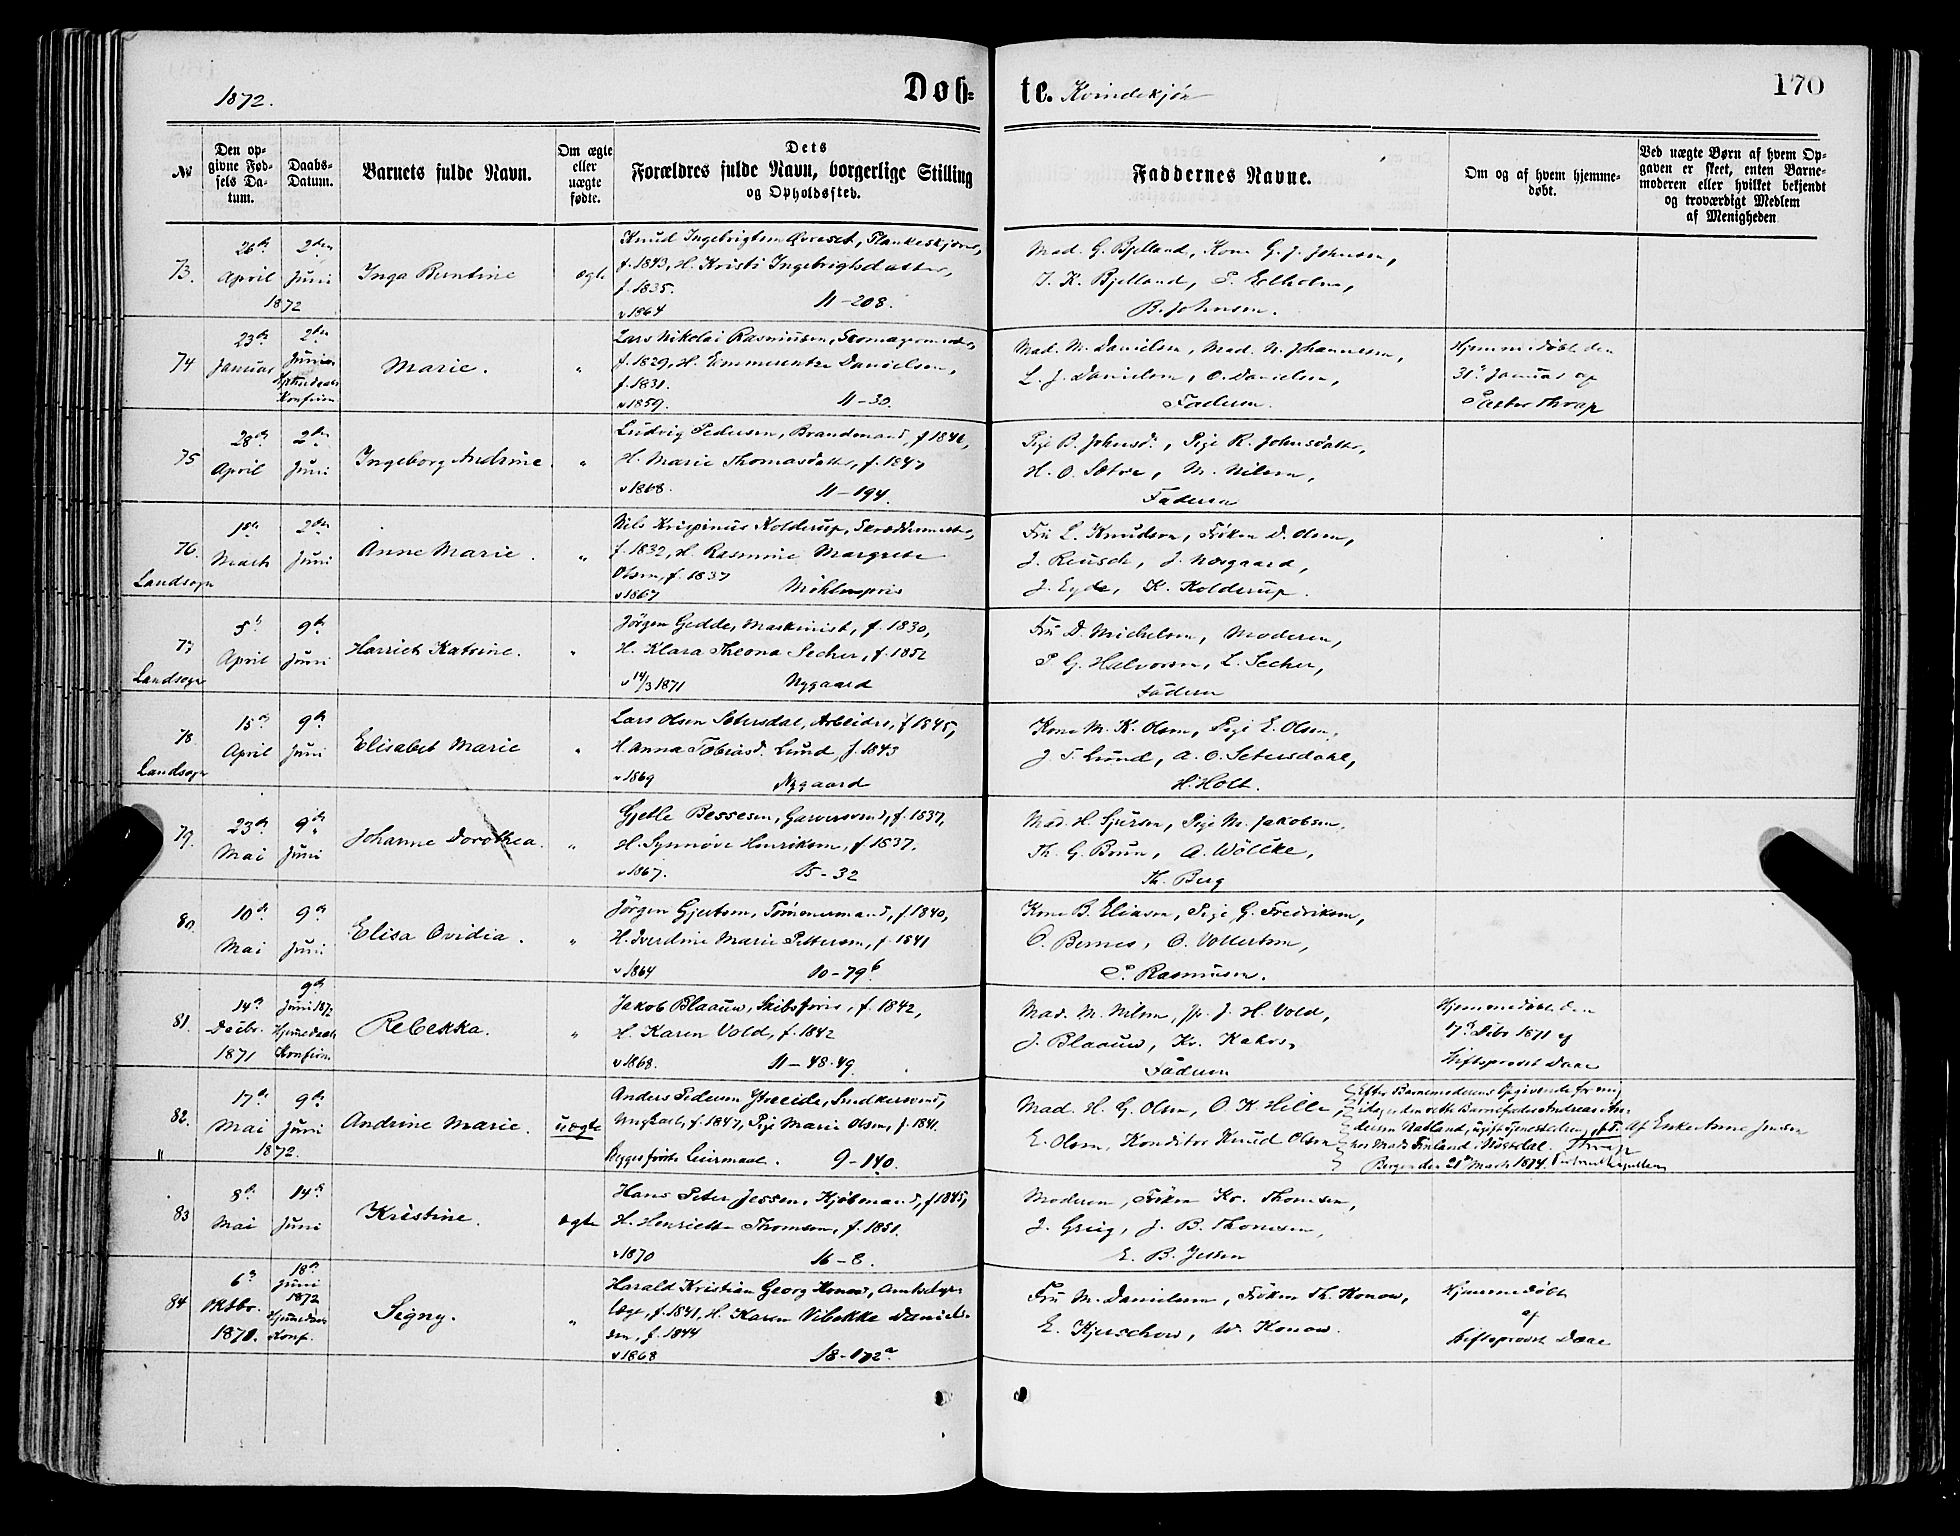 1872.
Døb=
te. Kvindekjøn
170
No
Den op-
givne Fød-
sels Da-
tum.
Daabs-
Datum.
Barnets fulde Navn.
Om ægte
eller
uægte
fødte.
Dets
Forældres fulde Navn, borgerlige Stilling
og Opholdssted.
Faddernes Navne.
Om og af hvem hjemme-
døbt.
Ved uægte Børn af hvem Op-
gaven er skeet, enten Barne-
moderen eller hvilket bekjendt
og troværdigt Medlem
af Menigheden
73.
26de April 1872
2den Juni
Inga Berntine
ægte
Knud Ingebrigtsen
f. 1843, H. Kristi Ingebrigtsdatter,
f. 1835.
v 1864 11-208.
Mad. G. Bjelland, Kone G. J. Johnsen,
J. K. Bjelland, P. Elholm,
B. Johnsen.
74
23de Januar
2den Juni
Marie.
"
Lars Nikolai Rasmussen,
f. 1829, H. Emmerentze Danielsen,
f. 1831.
v 1859. 11-30.
Mad. M. Danielsen, Mad. N. Johannesen,
L. J. Danielsen, O. Danielsen,
Faderen.
Hjemmedøbt den
31. Januar af
Pastor Thrap
75
28de April
2den Juni
Ingeborg Andrine
"
Ludvig Pedersen, Brandmand, f 1846,
H. Marie Thomasdatter, f. 1847
v 1868. 11-194.
Pige B. Johnsd., Pige R. Johnsdatter,
H. O. Sætre, M. Nilsen,
Faderen
76.
Landsogn
1ste Marts
2den Juni
Anne Marie.
"
Nils Krispinus Kolderup, Skreddermester,
f. 1832, H. Rasmine Margrete
Olsen, f. 1837
v 1867 Møhlenpris
Fru L. Knudsen, Frøken D. Olsen,
J. Reusch, J. Næsgaard,
J. Eyde, K. Kolderup.
77
Landsogn
5te April
9de Juni
Harriet Katrine.
"
Jørgen Gedde, Maskinist, f. 1830,
H. Klara Theona Secher, f. 1852
v 14/3 1871 Nygaard
Fru D. Michelsen, Moderen,
P. G. Halvorsen, L. Secher,
Faderen
78
Landsogn
15de April
9de Juni
Elisabet Marie
"
Lars Olsen Setersdal, Arbeider, f 1845,
H. Anna Tobiasd. Lund, f. 1843
v 1869 Nygaard
Kone M. K. Olsen, Pige E. Olsen,
J. T. Lund, A. O. Setersdahl,
H. Holt.
79.
23de Mai
9de Juni
Johanne Dorothea.
"
Gjetle Bessesen, Garversvend, f. 1837,
H. Synnøve Henriksen, f 1837.
v 1867. 15-32
Mad. H. Sjursen, Pige M. Jakobsen,
Th. G. Brun, A. Wölcke,
Th. Berg
80.
10de Mai
9de Juni
Elisa Ovidia.
"
Jørgen Gjertsen, Tømmermand, f 1840,
H. Iverdine Marie Pettersen, f. 1841
v 1864 10-79b
Kone B. Eliasen, Pige G. Fredriksen,
O. Bernes, O. Vollertsen,
P. Rasmusen.
81.
14de Decbr. 1871
9de Juni 1872
Rebekka.
"
Jakob Blaauw, Skibsfører, f. 1842,
H. Karen Vold, f. 1842
v 1868. 11-48.49.
Mad. M. Nilsen, J. H. Vold,
J. Blaauw, Kr. Kahrs,
Faderen
Hjemmedøbt den
17de Decbr 1871 af
Stiftsprovst Daae
82.
"
17de Mai 1872.
9de Juni
Andrine Marie.
uægte
Anders Pedersen Ytreeide, Snedkersvend,
Ungkarl, f. 1847, Pige Marie Olsen, f. 1841.
Begges første Leiermaal. 9-140.
Mad. H. G. Olsen, O. K. Hille,
E. Olsen, Konditor Knud Olsen
Efter Barnemoderens Opgivende for mig
idag er den rette Barnefader Andreas
Natland, ugift
hos Mads Finland i Nøstdal. Thrap
Bergen den 21de Marts 1874.
Af Enke Anne Jensen
83
8de Mai
14de Juni
Kristine.
ægte
Hans Peter Jessen, Kjøbmand, f 1845,
H. Henriette Thomsen, f. 1851.
v 1870 16-8.
Moderen, Frøken Kr. Thomsen,
J. Grieg, J. B. Thomsen,
E. B. Jessen
84
6te Oktbr. 1871.
18de Juni 1872
Signy.
"
Harald Kristian Georg Konow,
f. 1841, H. Karen Vibekke Daniel-
sen, f. 1844
v 1868 18-172a
Fru M. Danielsen, Frøken Th. Konow,
E. Kjerschow, W. Konow.
Hjemmedøbt
af
Stiftsprovst Daae